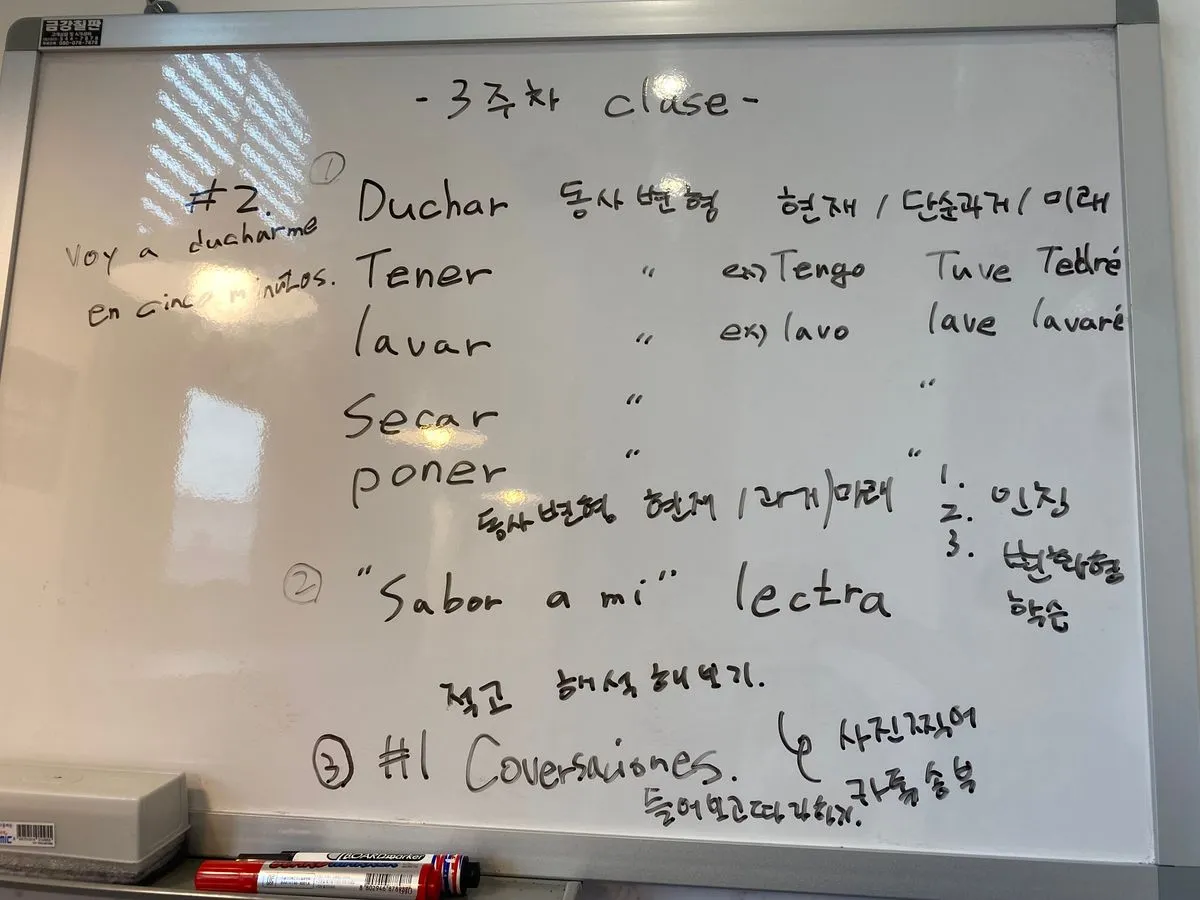 금강칠판
- 3주차 clase -
#2.
Voy a ducharme
en cinco minutos.
① Duchar 동사변형 현재 / 단순과거 / 미래
Tener " ex) Tengo Tuve Tedré
lavar " ex) lavo lave lavaré
Secar " "
poner " "
동사변형 현재 / 과거 / 미래
1.
2. 인칭
3. 변화형
학습
② "Sabor a mi" lectra
적고 해석해보기.
↳ 사진찍어
카톡송부
③ #1 Coversaciones.
들어보고따라하기.
BOARDmarker